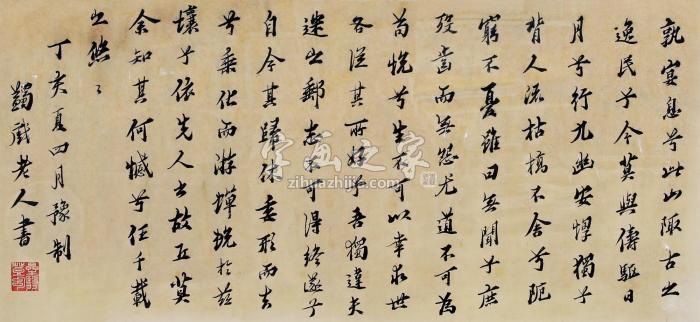 孰宴息兮此山陬古之
逸民兮今莫與儔驅日
月兮行九幽安惸獨兮
背人流枯槁不舍兮阨
窮不憂雖曰無聞兮庶
歿齒而無怨尤道不可為
苟悅兮生不可以幸求世
各從其所好兮吾獨違夫
迷之郵志不可得終遂兮
自今其歸休委形而去
兮乘化而游蟬蛻於茲
壤兮依先人之故丘莫
余知其何憾兮任千載
之悠〻
丁亥夏四月豫制
蠲戲老人書
字画之家
zihuazhijia.com